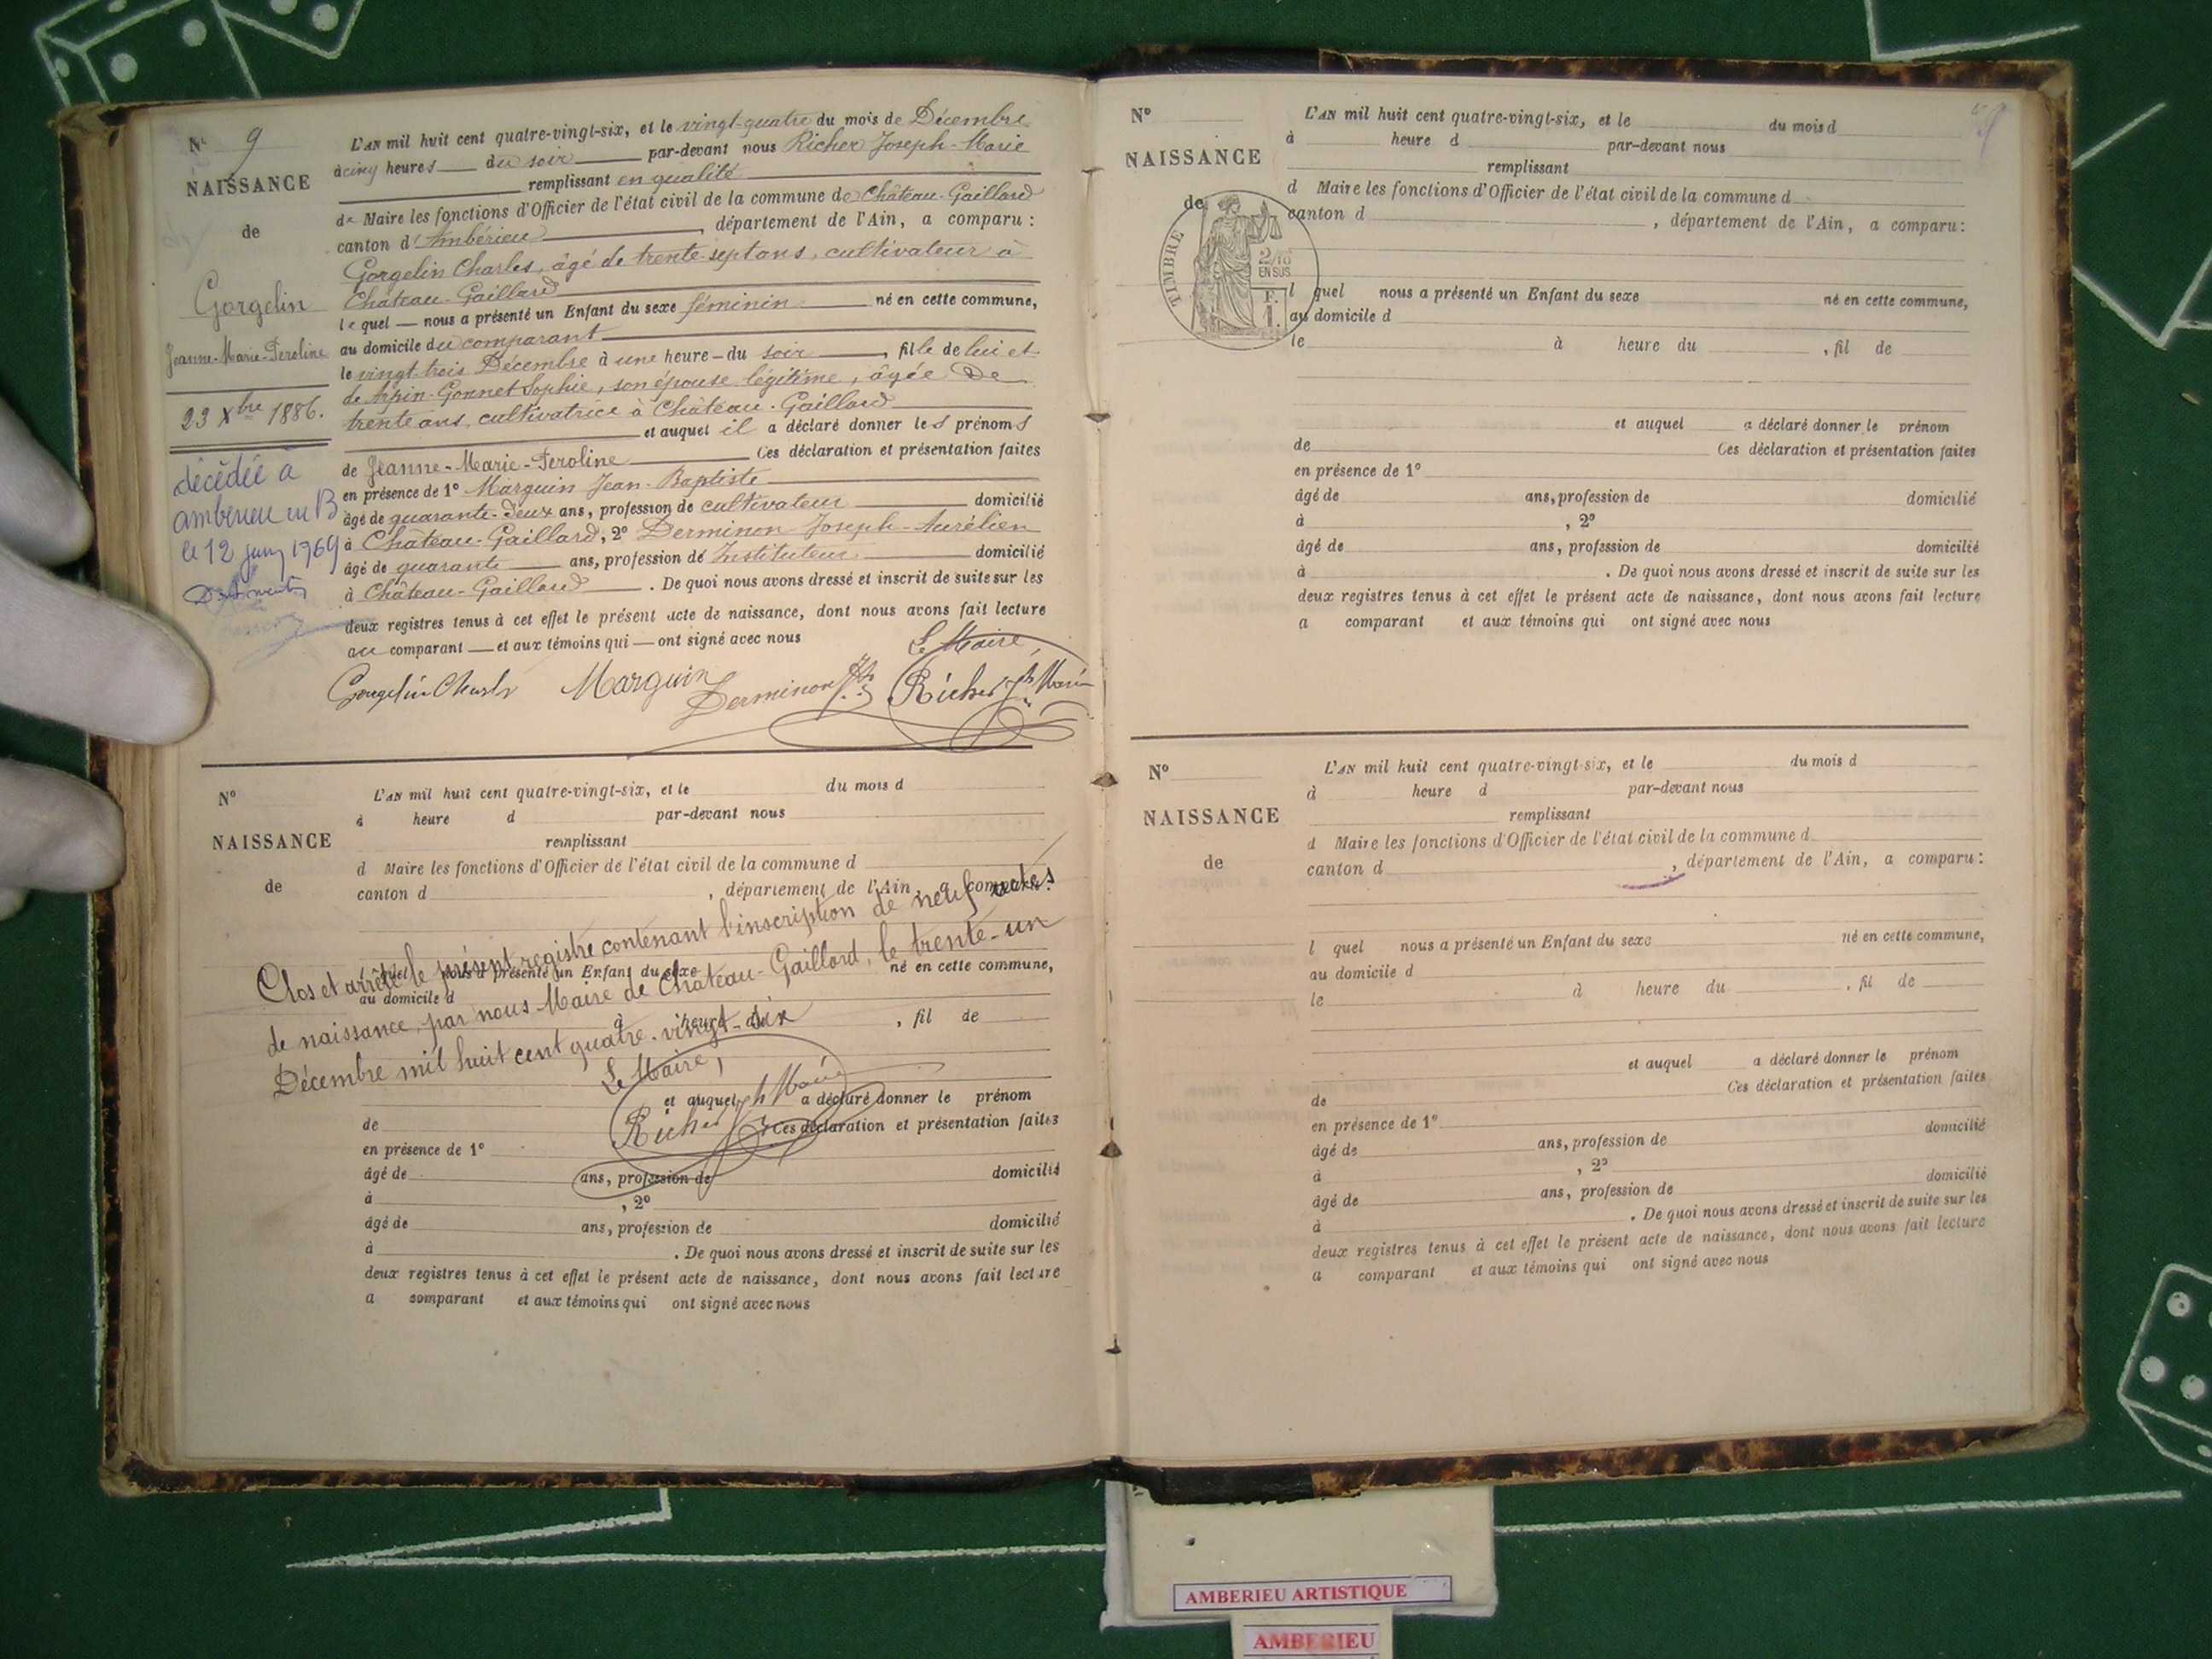 Nº 9
NAISSANCE
de
Gorgelin
Jeanne-Marie-Féroline
23 Xbre 1886.
décédée à
amberieu en B
le 12 1969
L'AN mil huit cent quatre-vingt-six, et le vingt-quatre du mois de Décembre
à cinq heures du soir par-devant nous Richer Joseph-Marie
remplissant en qualité
de Maire les fonctions d'Officier de l'état civil de la commune de Château-Gaillard
canton d'Ambérieu, département de l'Ain, a comparu :
Gorgelin Charles, âgé de trente-sept ans, cultivateur à
Château-Gaillard
lequel nous a présenté un Enfant du sexe féminin né en cette commune,
au domicile du comparant
le vingt-trois Décembre à une heure du soir, fille de lui et
de Arpin-Gonnet Sophie, son épouse légitime, âgée de
trente ans, cultivatrice à Château-Gaillard
et auquel il a déclaré donner les prénoms
de Jeanne-Marie-Féroline Ces déclaration et présentation faites
en présence de 1º Marguin Jean-Baptiste
âgé de quarante-deux ans, profession de cultivateur domicilié
à Château-Gaillard, 2º Derminon Joseph-Aurélien
âgé de quarante ans, profession de Instituteur domicilié
à Château-Gaillard. De quoi nous avons dressé et inscrit de suite sur les
deux registres tenus à cet effet le présent acte de naissance, dont nous avons fait lecture
au comparant et aux témoins qui ont signé avec nous
Le Maire,
Gorgelin Charles Marguin Derminon Jph Richer Jph Marie
Nº
NAISSANCE
de
L'AN mil huit cent quatre-vingt-six, et le du mois d
à heure d par-devant nous
remplissant
d Maire les fonctions d'Officier de l'état civil de la commune d
canton d , département de l'Ain, a comparu:
l quel nous a présenté un Enfant du sexe né en cette commune,
au domicile d
à heure du , fil de
Clos et arrêté le présent registre contenant l'inscription de neuf actes
de naissance, par nous Maire de Château-Gaillard, le trente-un
Décembre mil huit cent quatre-vingt-six
Le Maire,
Richer Jph Marie
et auquel a déclaré donner le prénom
de Ces déclaration et présentation faites
en présence de 1º
âgé de ans, profession de domicilié
à , 2º
âgé de ans, profession de domicilié
à . De quoi nous avons dressé et inscrit de suite sur les
deux registres tenus à cet effet le présent acte de naissance, dont nous avons fait lecture
a comparant et aux témoins qui ont signé avec nous
Nº
NAISSANCE
de
TIMBRE
2/10
EN SUS
F.
1.
L'AN mil huit cent quatre-vingt-six, et le du mois d
à heure d par-devant nous
remplissant
d Maire les fonctions d'Officier de l'état civil de la commune d
canton d , département de l'Ain, a comparu:
l quel nous a présenté un Enfant du sexe né en cette commune,
au domicile d
le à heure du , fil de
et auquel a déclaré donner le prénom
de Ces déclaration et présentation faites
en présence de 1º
âgé de ans, profession de domicilié
à , 2º
âgé de ans, profession de domicilié
à . De quoi nous avons dressé et inscrit de suite sur les
deux registres tenus à cet effet le présent acte de naissance, dont nous avons fait lecture
a comparant et aux témoins qui ont signé avec nous
Nº
NAISSANCE
de
L'AN mil huit cent quatre-vingt-six, et le du mois d
à heure d par-devant nous
remplissant
d Maire les fonctions d'Officier de l'état civil de la commune d
canton d , département de l'Ain, a comparu:
l quel nous a présenté un Enfant du sexe né en cette commune,
au domicile d
le à heure du , fil de
et auquel a déclaré donner le prénom
de Ces déclaration et présentation faites
en présence de 1º
âgé de ans, profession de domicilié
à , 2º
âgé de ans, profession de domicilié
à . De quoi nous avons dressé et inscrit de suite sur les
deux registres tenus à cet effet le présent acte de naissance, dont nous avons fait lecture
a comparant et aux témoins qui ont signé avec nous
AMBERIEU ARTISTIQUE
AMBERIEU